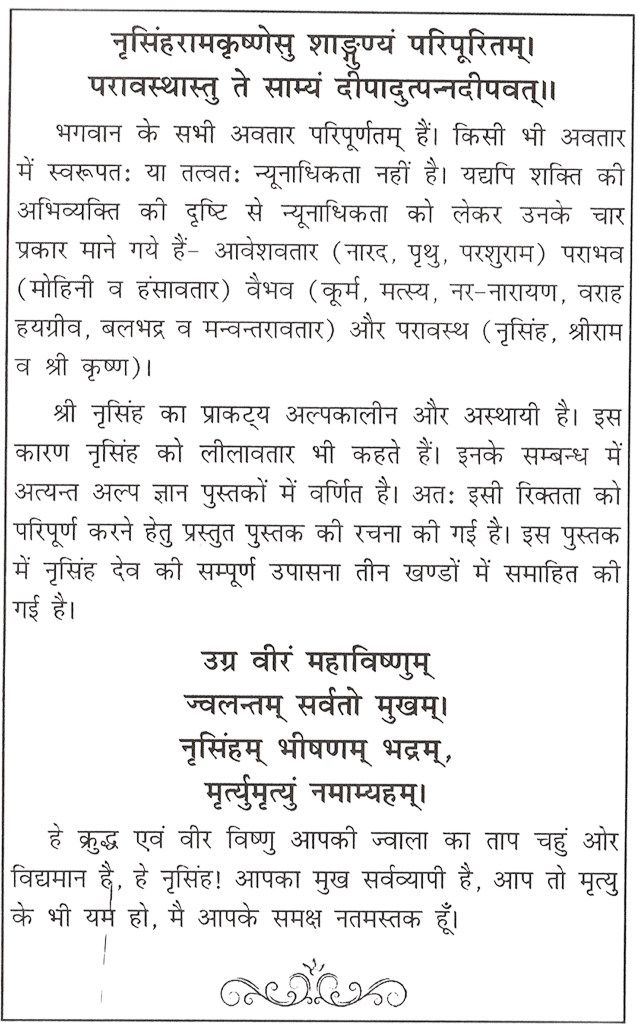 नृसिंहरामकृष्णेसु शाङ्गुण्यं परिपूरितम्।
परावस्थास्तु ते साम्यं दीपादुत्पन्नदीपवत्॥
भगवान के सभी अवतार परिपूर्णतम् हैं। किसी भी अवतार
में स्वरूपत: या तत्वत: न्यूनाधिकता नहीं है। यद्यपि शक्ति की
अभिव्यक्ति की दृष्टि से न्यूनाधिकता को लेकर उनके चार
प्रकार माने गये हैं- आवेशवतार (नारद, पृथु, परशुराम) पराभव
(मोहिनी व हंसावतार) वैभव (कूर्म, मत्स्य, नर-नारायण, वराह
हयग्रीव, बलभद्र व मन्वन्तरावतार) और परावस्थ (नृसिंह, श्रीराम
व श्री कृष्ण)।
श्री नृसिंह का प्राकट्य अल्पकालीन और अस्थायी है। इस
कारण नृसिंह को लीलावतार भी कहते हैं। इनके सम्बन्ध में
अत्यन्त अल्प ज्ञान पुस्तकों में वर्णित है। अत: इसी रिक्तता को
परिपूर्ण करने हेतु प्रस्तुत पुस्तक की रचना की गई है। इस पुस्तक
में नृसिंह देव की सम्पूर्ण उपासना तीन खण्डों में समाहित की
गई है।
उग्र वीरं महाविष्णुम्
ज्वलन्तम् सर्वतो मुखम्।
नृसिंहम् भीषणम् भद्रम्,
मृर्त्युमृत्युं नमाम्यहम्।
हे क्रुद्ध एवं वीर विष्णु आपकी ज्वाला का ताप चहुं ओर
विद्यमान है, हे नृसिंह! आपका मुख सर्वव्यापी है, आप तो मृत्यु
के भी यम हो, मै आपके समक्ष नतमस्तक हूँ।